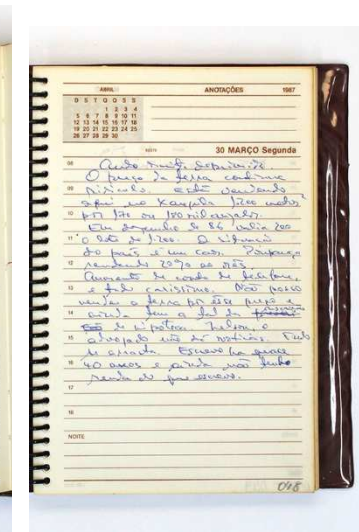 ABRIL
ANOTAÇÕES
1987
D S T Q Q S S
1 2 3 4
5 6 7 8 9 10 11
12 13 14 15 16 17 18
19 20 21 22 23 24 25
26 27 28 29 30
30 MARÇO Segunda
08 Ando muito deprimido
O preço da terra continua
09 ridículo. Estão vendendo
aqui no
10 por 170 ou 180 mil cruzados.
Em dezembro de 86, valia 200
11 o lote de 1200. A situação
do país é um caos. Poupança
12 rendendo 20% ao mês
13 e tudo caríssimo. Não posso
vender a terra por esse preço e
14 ainda tem a tal da
de hipoteca. Nelson, o
15 advogado não dá notícias. Tudo
se arrasta. Escrevo há quase
16 40 anos e ainda não tenho
renda do que escrevo.
17
18
NOITE
048